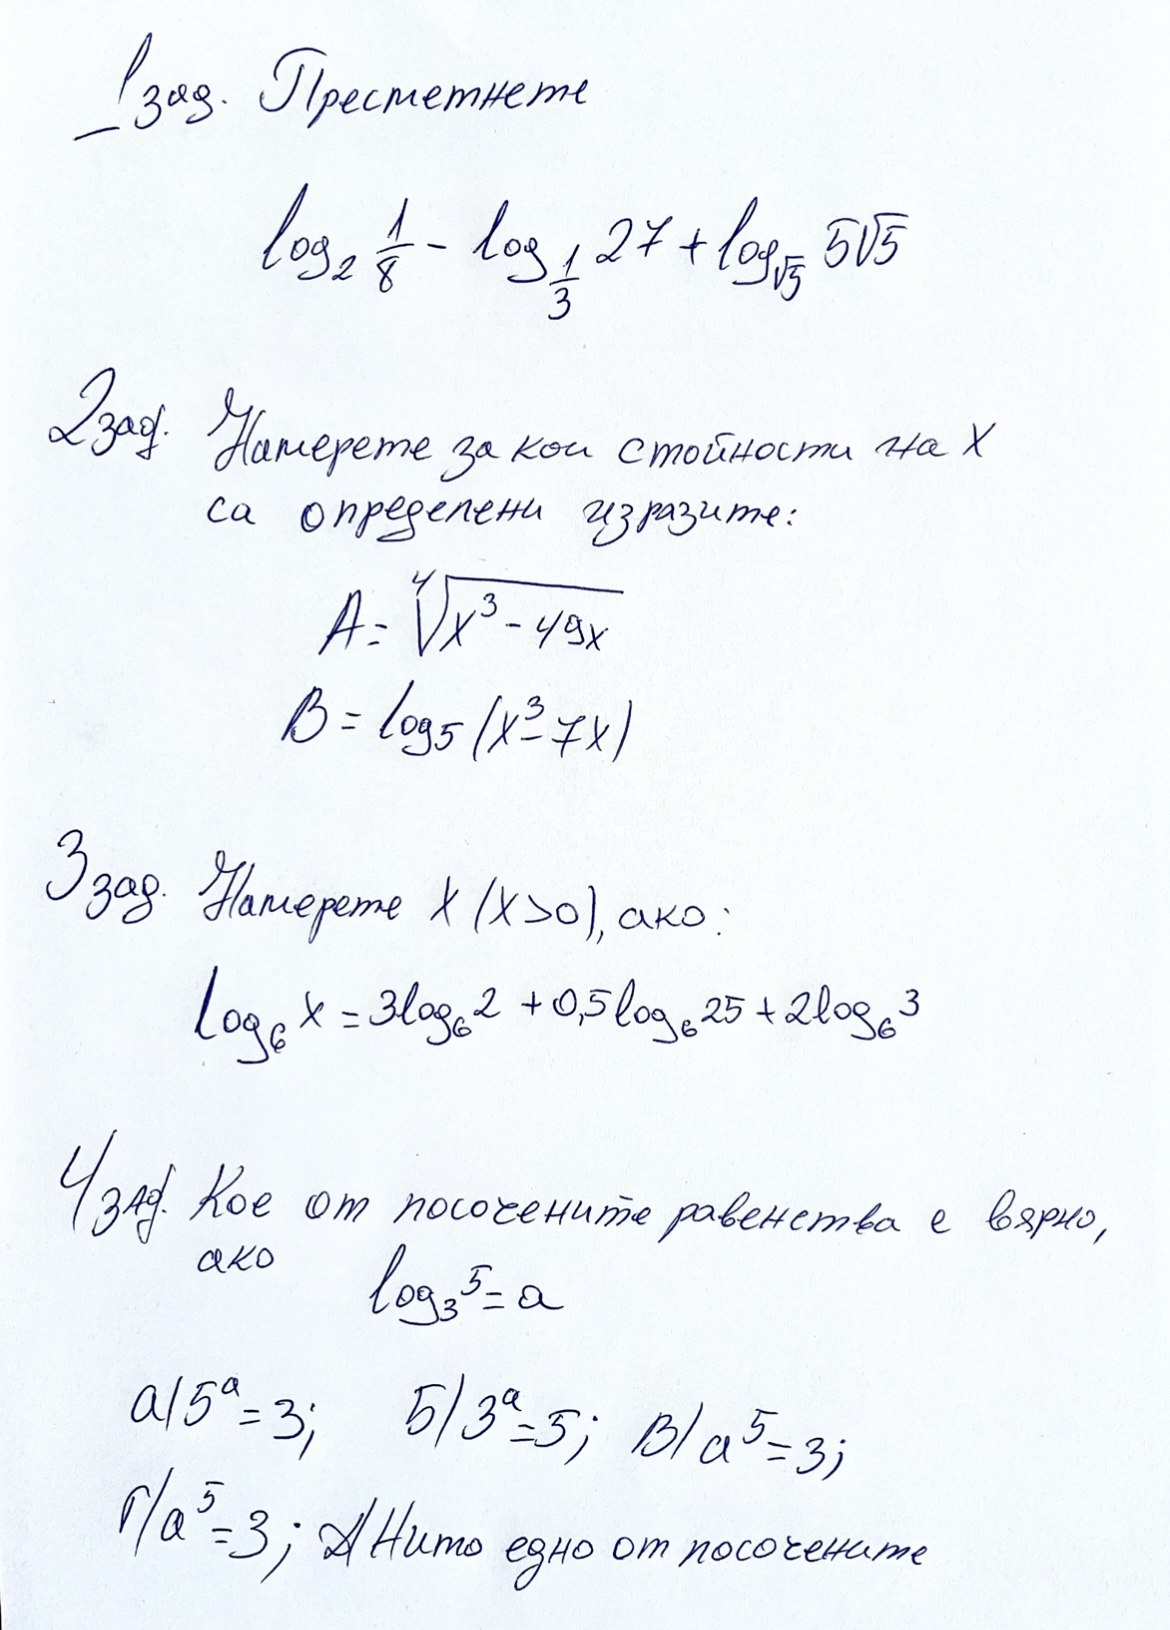 1 зад. Пресметнете
log₂ 1/8 - log_{1/3} 27 + log_{√5} 5√5
2 зад. Намерете за кои стойности на X
са определени изразите:
A = ∜(x³ - 49x)
B = log₅ (x³ - 7x)
3 зад. Намерете X (X>0), ако:
log₆ x = 3log₆ 2 + 0,5log₆ 25 + 2log₆ 3
4 зад. Кое от посочените равенства е вярно,
ако
log₃ 5 = a
а/ 5ᵃ = 3; Б/ 3ᵃ = 5; В/ a⁵ = 3;
Г/ a⁵ = 3; Д/ Нито едно от посочените